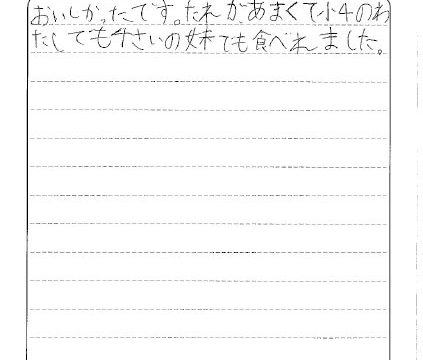 おいしかったです。たれがあまくて小4のわ
たしでも4さいの妹でも食べれました。